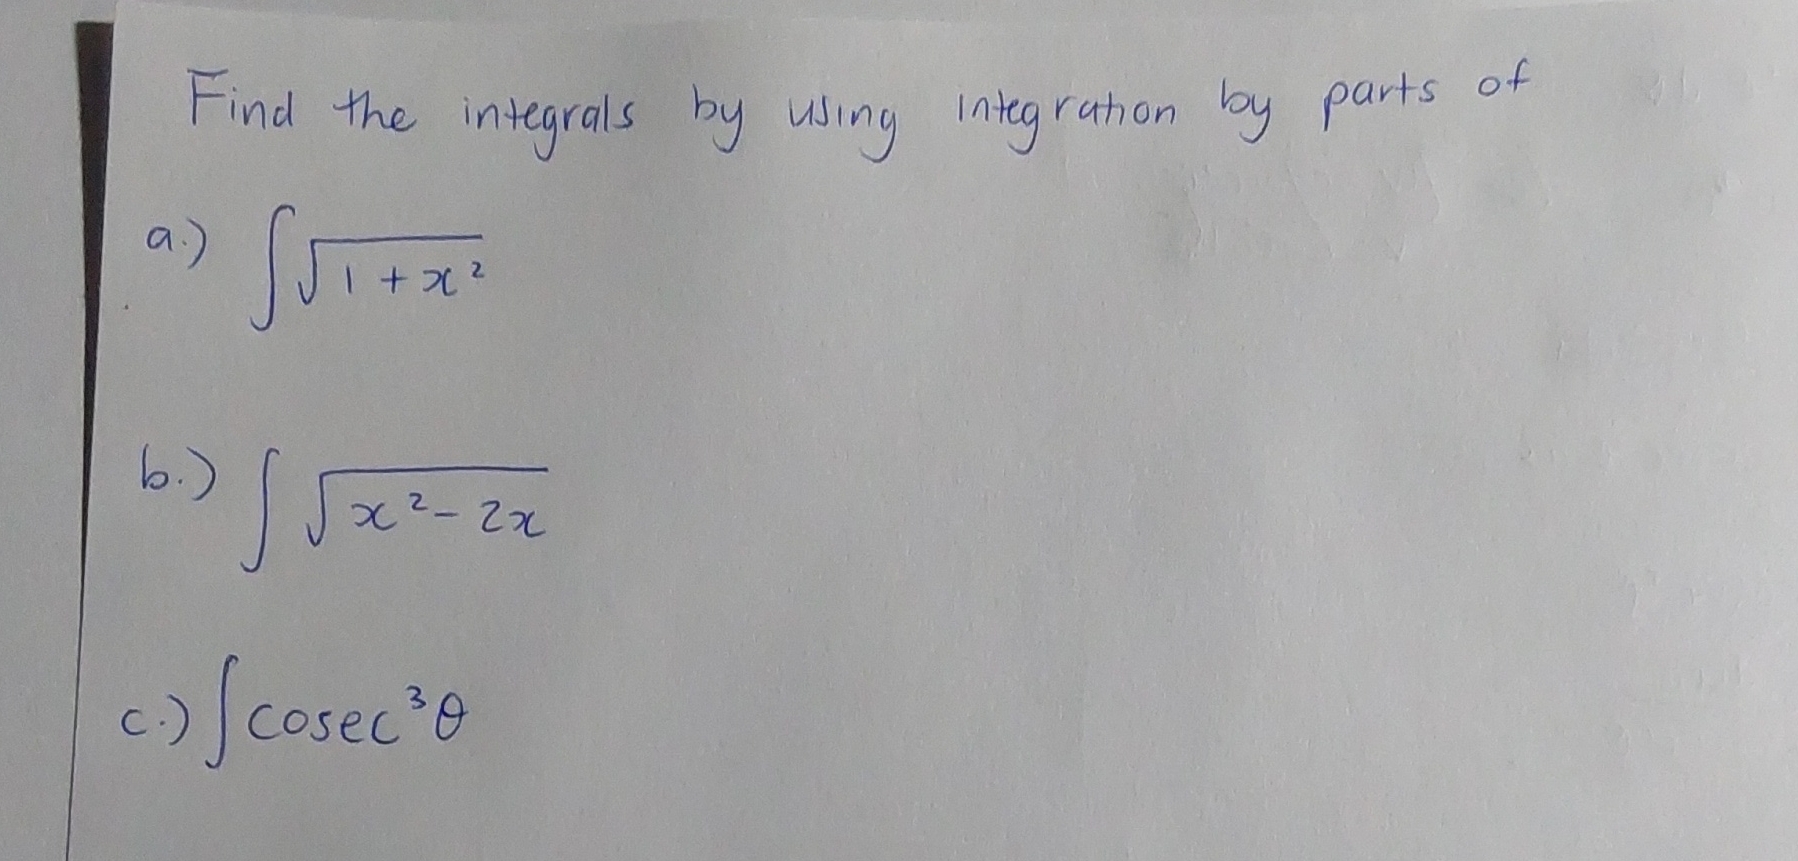 Find the integrals by using integration by parts of
a.) ∫√(1 + x²)
b.) ∫√(x² - 2x)
c.) ∫cosec³θ